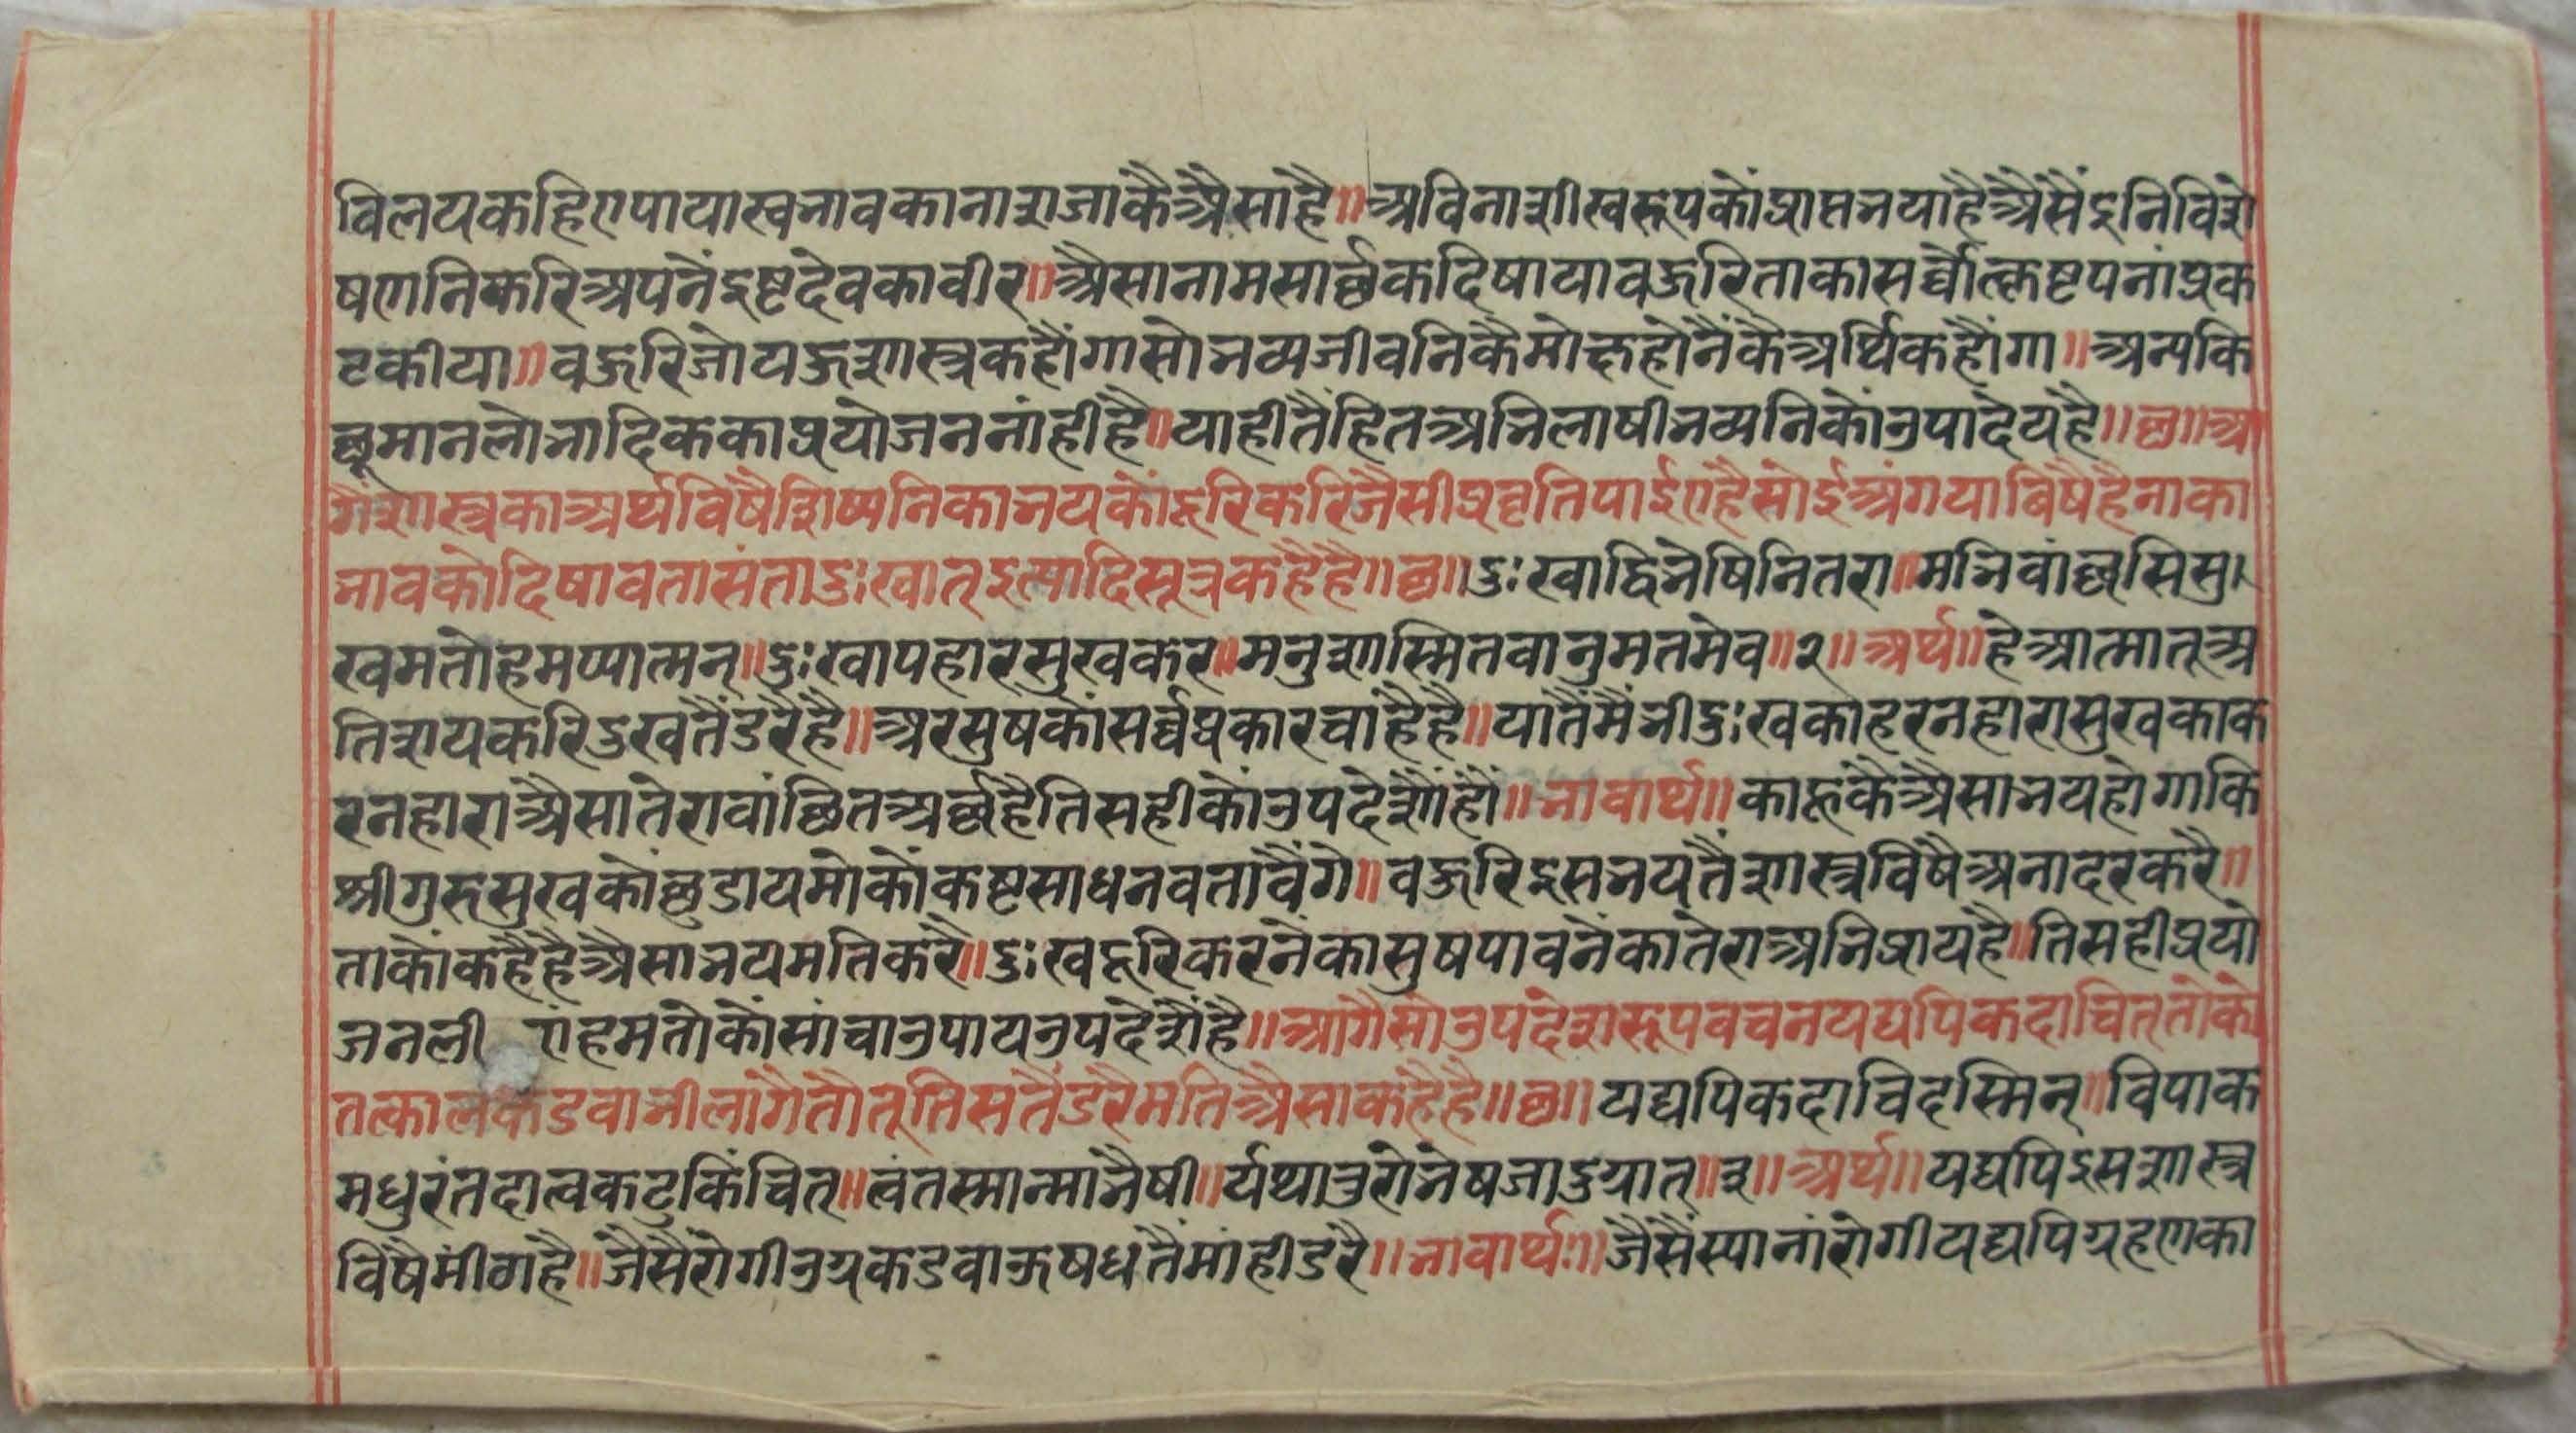 विलयकहिएपायास्वभावकानाशजाकैअैसाहै॥अविनाशीस्वरूपकोंप्राप्तभयाहैअैसैंइनिविशे
षणनिकरिअपनैंइष्टदेवकावीर॥अैसानामसार्छकदिषायावऊरिताकासर्व्वोत्कृष्टपनांप्रक
टकीया॥वऊरिजोयऊशास्त्रकहौंगासोभव्यजीवनिकैमोक्षहोनैंकैअर्थिकहौंगा॥अन्यकि
छूमानलोभादिककाप्रयोजननांहीहै॥याहीतैंहितअभिलाषीभव्यनिकोंउपादेयहै॥छ॥आ
गैंशास्त्रकाअर्थविषैशिष्यनिकाभयकोंदूरिकरिजैसीप्रवृतिपाईएहैसोईअंगयाबिषैहैताका
भावकोदिषावतासंतादुःखात्इत्यादिसूत्रकहैहै॥छ॥दुःखाद्विभेषिनितरा॥मभिवांछसिसु।
खमतोहमप्यात्मन्॥दुःखापहारसुखकर॥मनुशास्मितवानुमतमेव॥२॥अर्थ॥हेआत्मातूअ
तिशयकरिदुखतैंडरैहै॥अरसुषकोंसर्व्वप्रकारचांहैहै॥यातैंमैंभीदुःखकाहरनहारासुखकाक
रनहाराअैसातेरावांछितअर्छहैतिसहीकोंउपदेशौंहौं॥भावार्थ॥काहूकैअैसाभयहोगाकि
श्रीगुरुसुखकोंछुडायमोकोंकष्टसाधनवतावैंगे॥वऊरिइसभयतैंशास्त्रविषैअनादरकरै॥
ताकोंकहैहैअैसाभयमतिकरै॥दुःखदूरिकरनेंकासुषपावनेंकातेराअभिप्रायहै॥तिसहीप्रयो
जनली एंहमतोकोंसांचाउपायउपदेशेंहै॥आगैसोउपदेशरूपवचनयद्यपिकदाचित्तोकों
तत्कालकडवाभीलागैतोतूतिसतैंडरैमतिअैसाकहैहै॥छ॥यद्यपिकदाचिदस्मिन्॥विपाक
मधुरंतदात्वकटुकिंचित्॥त्वंतस्मान्माभैषी॥र्यथाउरोभेषजादुग्रात्॥३॥अर्थ॥यद्यपिइसशास्त्र
विषैमीठाहै॥जैसैरोगीउग्रकडवाऊषधतैंमांहीडरै॥भावार्थः॥जैसैंस्यानांरोगीयद्यपिग्रहणका